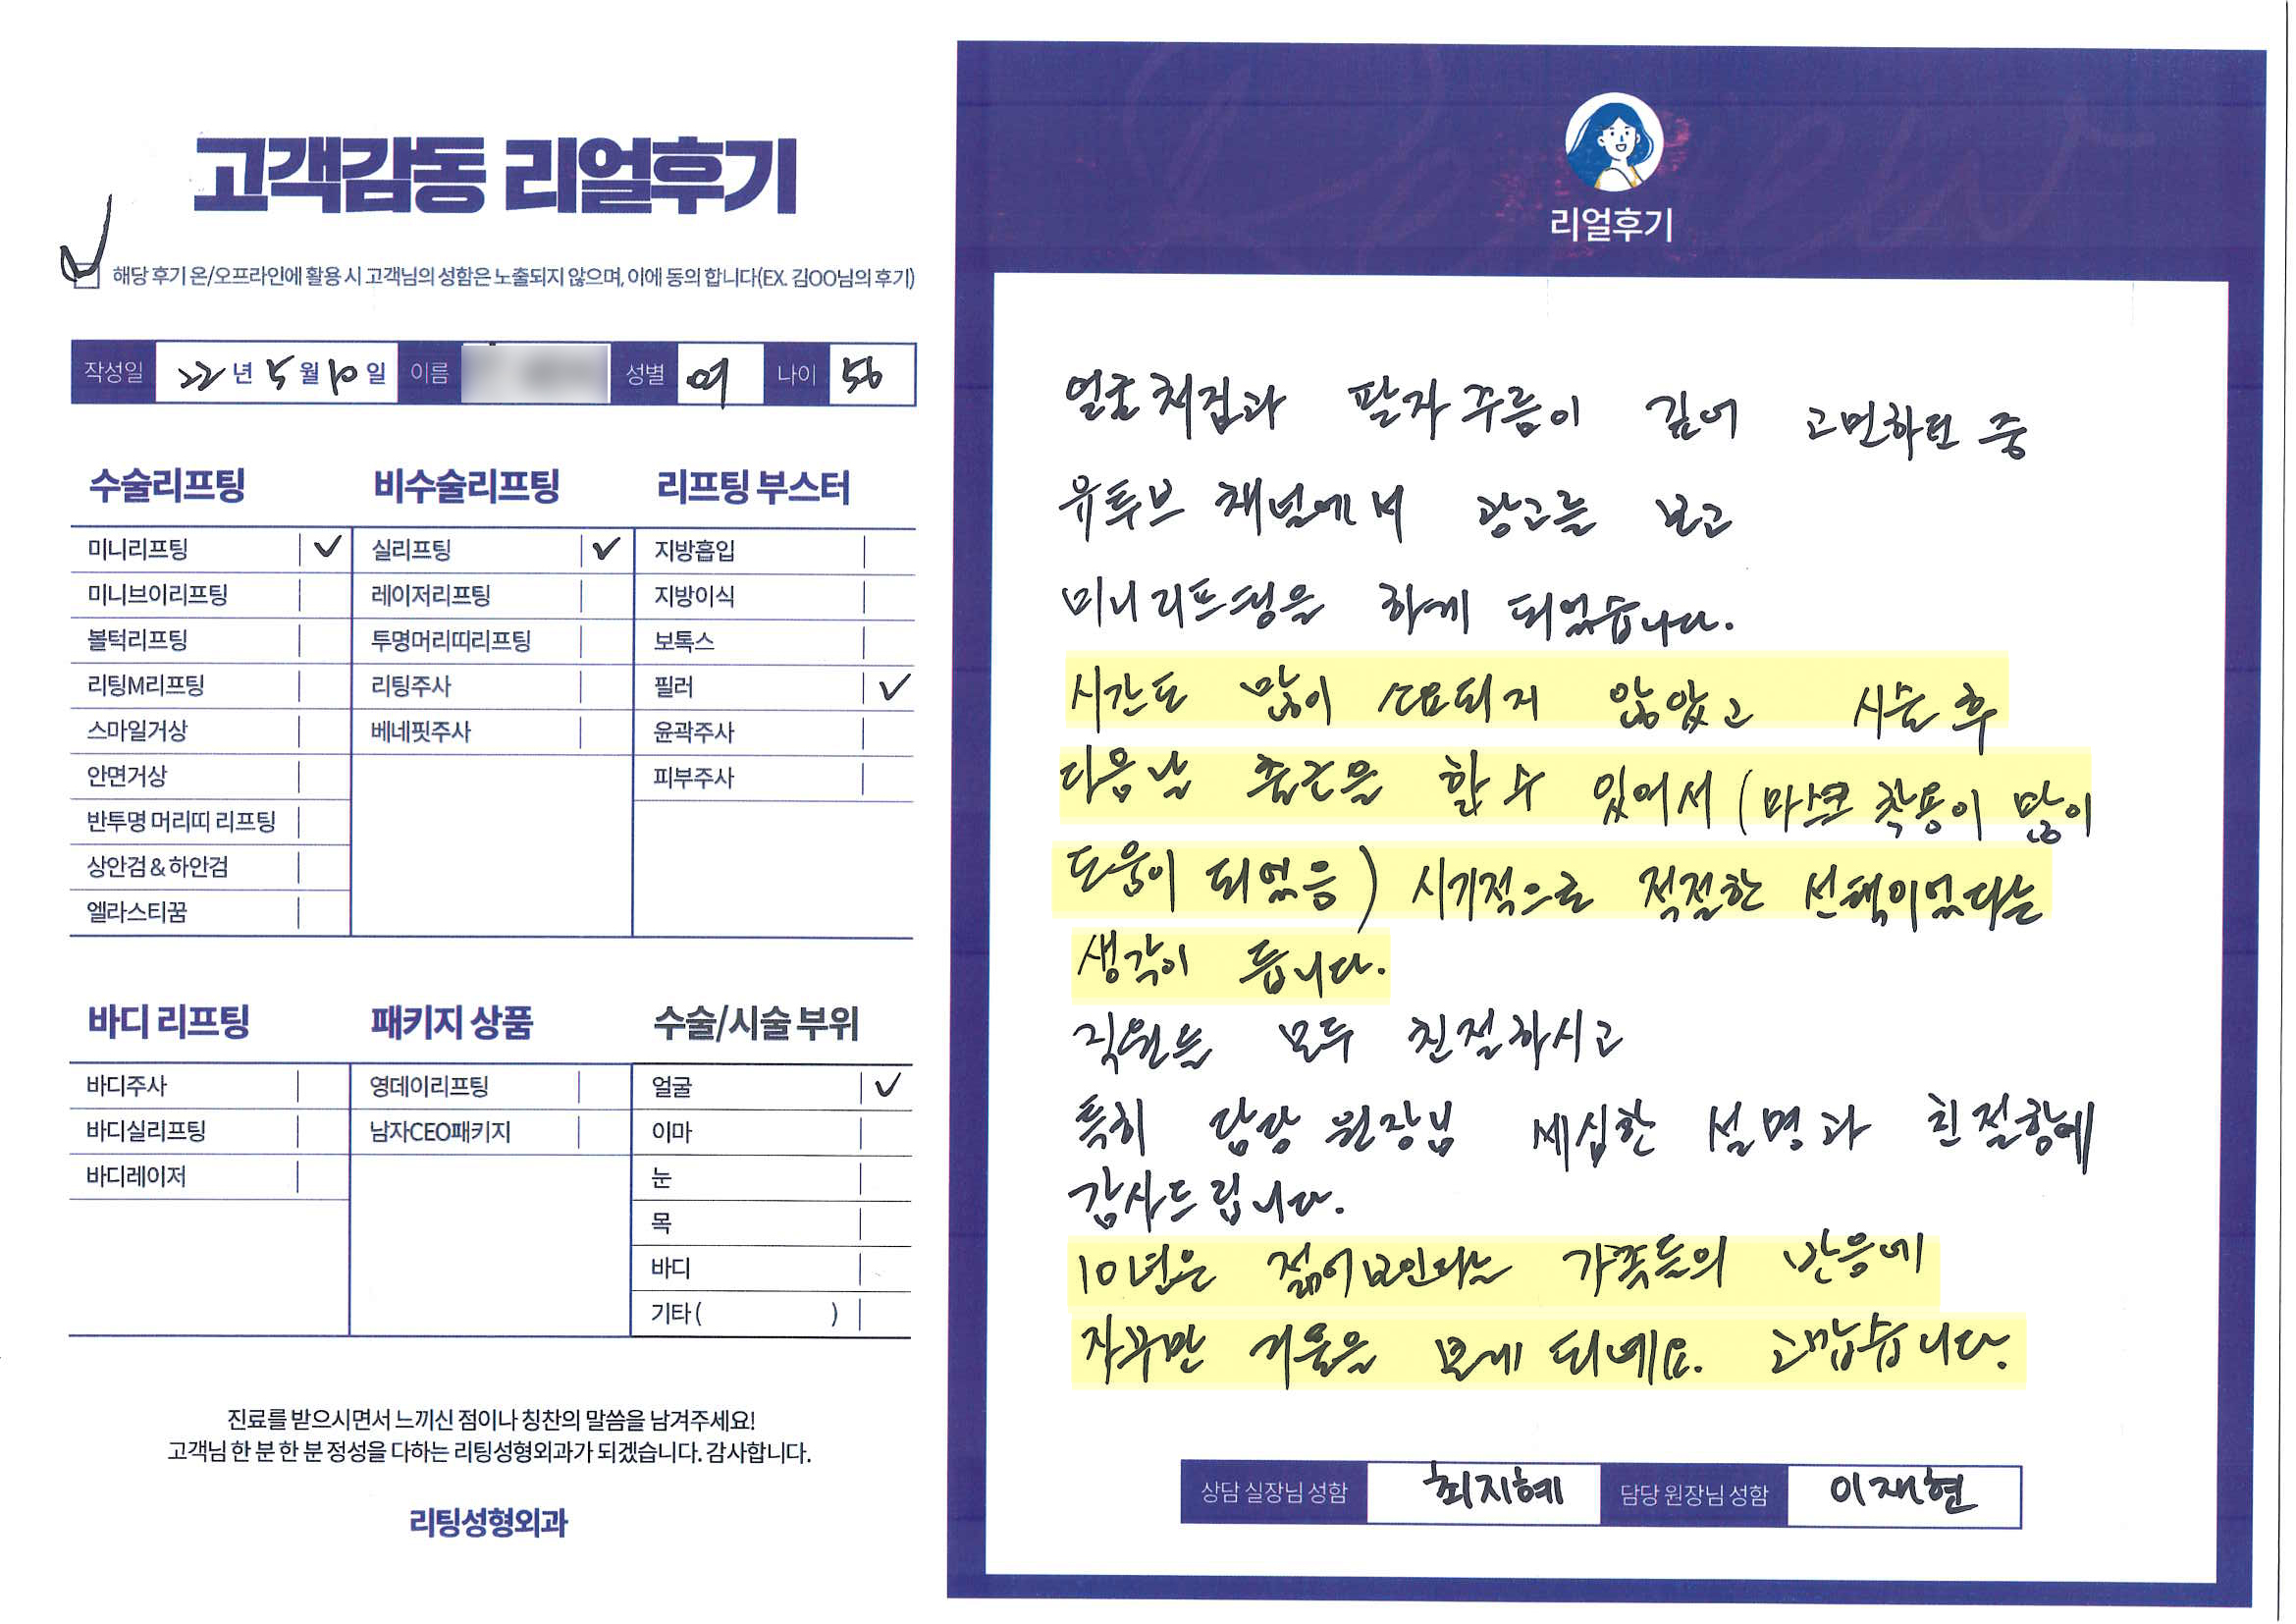 고객감동 리얼후기
해당 후기 온/오프라인에 활용 시 고객님의 성함은 노출되지 않으며, 이에 동의 합니다(EX. 김OO님의 후기)
작성일 22년 5월 10일 이름 성별 여 나이 56
수술리프팅
미니리프팅 ✓
미니브이리프팅
볼턱리프팅
리팅M리프팅
스마일거상
안면거상
반투명 머리띠 리프팅
상안검 & 하안검
엘라스티꿈
비수술리프팅
실리프팅 ✓
레이저리프팅
투명머리띠리프팅
리팅주사
베네핏주사
리프팅 부스터
지방흡입
지방이식
보톡스
필러 ✓
윤곽주사
피부주사
바디 리프팅
바디주사
바디실리프팅
바디레이저
패키지 상품
영데이리프팅
남자CEO패키지
수술/시술 부위
얼굴 ✓
이마
눈
목
바디
기타 ( )
진료를 받으시면서 느끼신 점이나 칭찬의 말씀을 남겨주세요!
고객님 한 분 한 분 정성을 다하는 리팅성형외과가 되겠습니다. 감사합니다.
리팅성형외과
리얼후기
얼굴 처짐과 팔자 주름이 깊어 고민하던 중
유투브 채널에서 광고를 보고
미니리프팅을 하게 되었습니다.
시간도 많이 소요되지 않았고 시술 후
다음날 출근을 할 수 있어서 (마스크 착용이 많이
도움이 되었음) 시기적으로 적절한 선택이었다는
생각이 듭니다.
직원분 모두 친절하시고
특히 담당 원장님 세심한 설명과 친절함에
감사드립니다.
10년은 젊어보인다는 가족들의 반응에
자꾸만 거울을 보게 되네요. 고맙습니다.
상담 실장님 성함 최지혜 담당 원장님 성함 이재현